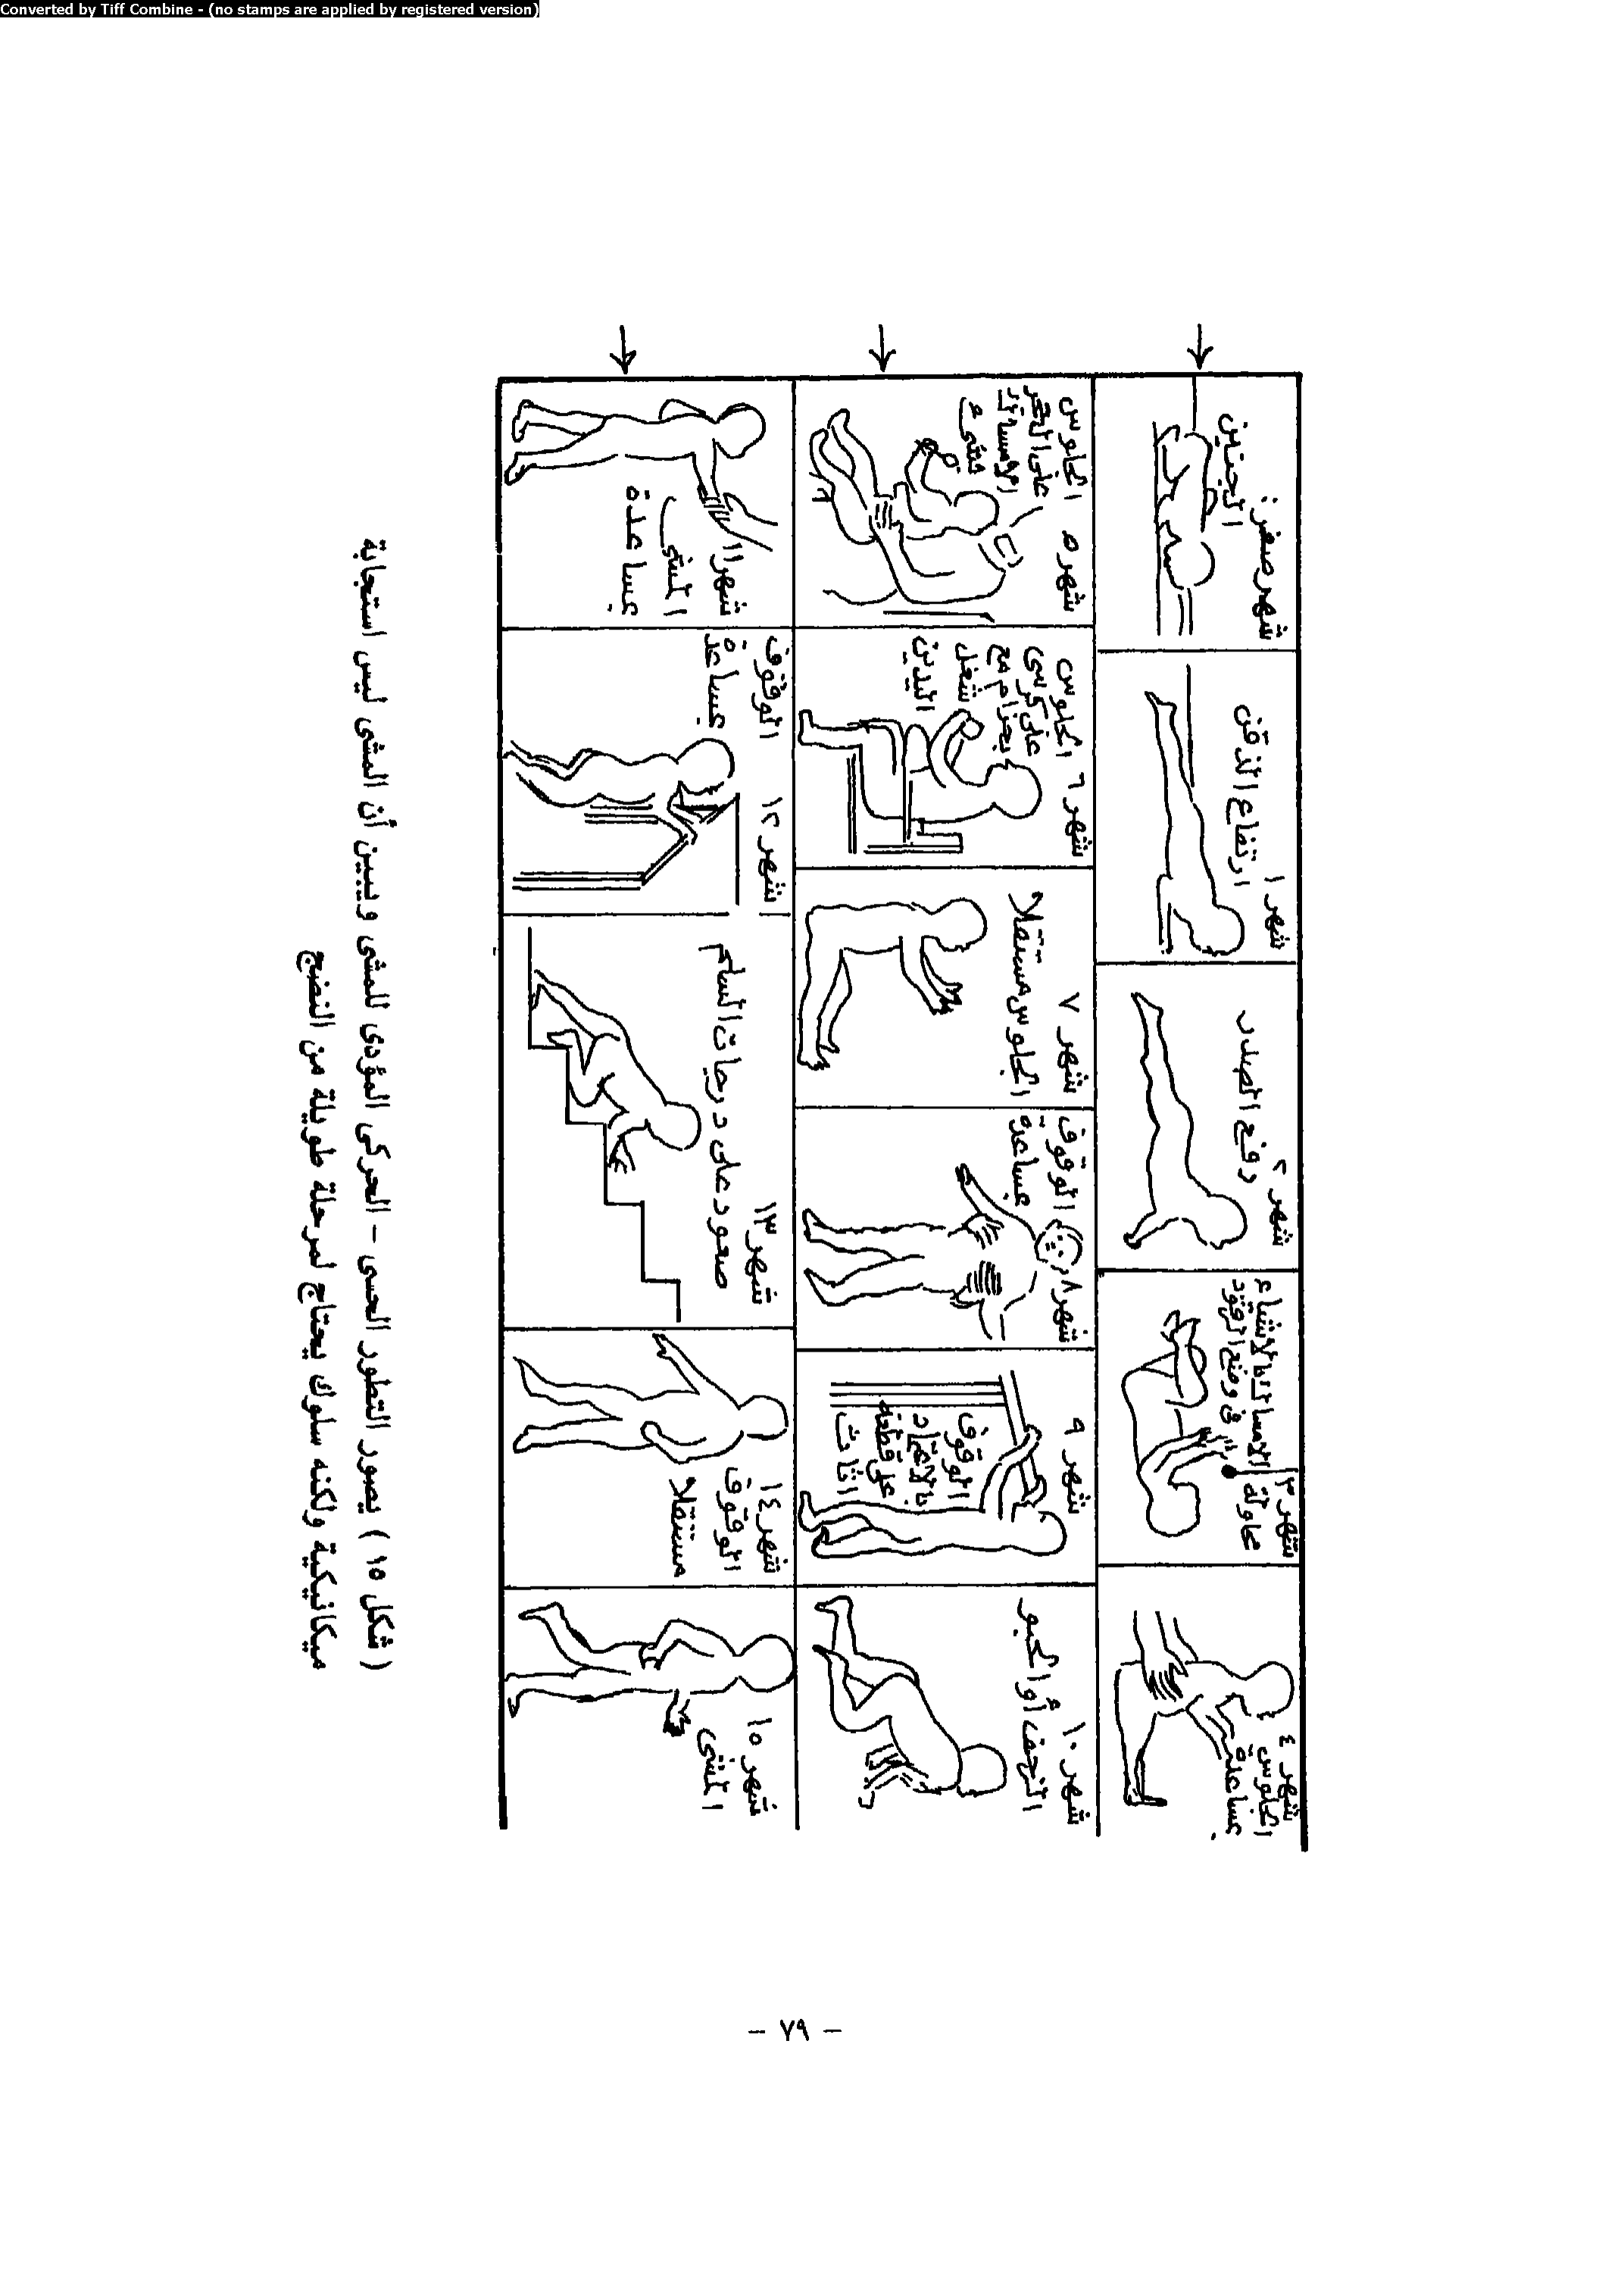 Converted by Tiff Combine - (no stamps are applied by registered version)
شهر صفر :
الجنين
شهر ١
ارتفاع الذقن
شهر ٢
رفع الصدر
شهر ٣
محاولة الامساك بالأشياء
فى وضع الرقود
شهر ٤
الجلوس
بمساعدة
شهر ٥
الجلوس
على الحجر
الامساك
بشىء
شهر ٦
الجلوس
على كرسى
بحزام مع
شغل
اليدين
شهر ٧
الجلوس مستقلا
شهر ٨
الوقوف
بمساعدة
شهر ٩
الوقوف
بالاعتماد
على قطعة
اثاث
شهر ١٠
الزحف أو الحبو
شهر ١١
المشى
بمساعدة
شهر ١٢
الوقوف
بمساعدة
شهر ١٣
صعود على درجات السلم
شهر ١٤
الوقوف
مستقلا
شهر ١٥
المشى
( شكل ١٥ ) يصور التطور الحسى - الحركى المؤدى للمشى ويبين أن المشى ليس استجابة
ميكانيكية ولكنه سلوك يحتاج لمرحلة طويلة من النضج
- ٧٩ -